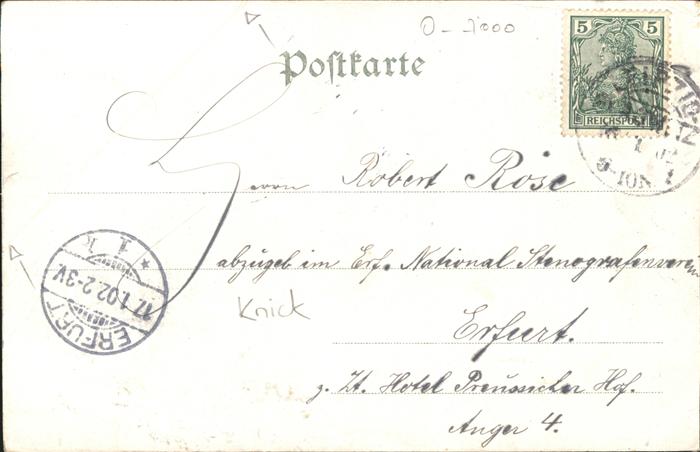 O-1000
Postkarte
5 5
REICHSPOST
5-10N
Herrn Robert Rose
abzugeb im Erf. National Stenografenverein
Knick
Erfurt.
z. Zt. Hotel Preussischer Hof.
Anger 4.
ERFURT
17.1.02.2-3V.
* 1 k